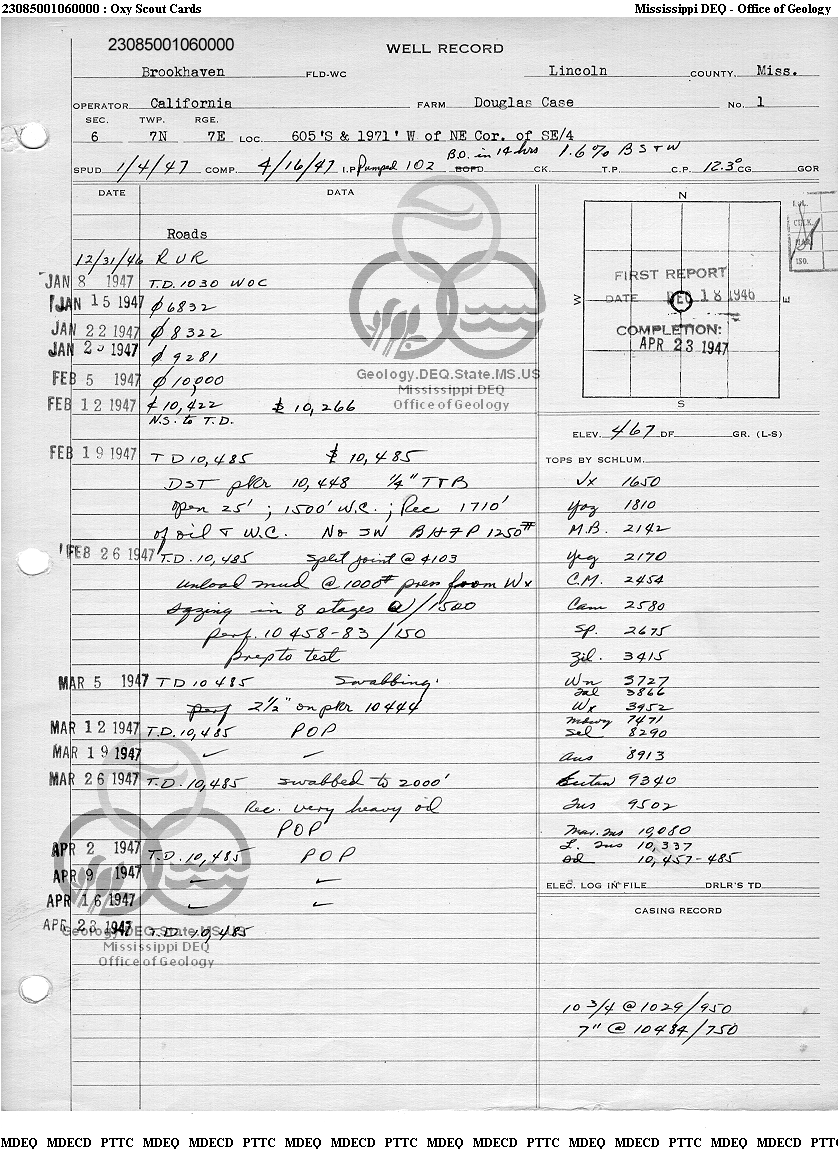 23085001060000 : Oxy Scout Cards Mississippi DEQ - Office of Geology
23085001060000
WELL RECORD
Brookhaven FLD-WC Lincoln COUNTY Miss.
OPERATOR California FARM Douglas Case No. 1
SEC. TWP. RGE.
6 7N 7E LOC. 605'S & 1971' W of NE Cor. of SE/4
B.O. in 14 hrs 1.6% BS+W
SPUD 1/4/47 COMP. 4/16/47 I.P. Pumped 102 BOPD CK. T.P. C.P. 12.3° CG GOR
DATE DATA
Roads
12/31/46 RUR
JAN 8 1947 T.D. 1030 WOC
JAN 15 1947 ∅ 6832
JAN 22 1947 ∅ 8322
JAN 1947 ∅ 9281
FEB 5 1947 ∅ 10,000
FEB 12 1947 10,422 10,266
N.S. to T.D.
FEB 19 1947 TD 10,485 10,485
DST pkr 10,448 1/4" TTB
open 25' ; 1500' W.C. ; Rec 1710'
of oil & W.C. No SW BHFP 1250#
FEB 26 1947 T.D. 10,485 Split joint @ 4103
unload mud @ 1000# press from Wx
sqzing in 8 stages W/1500
perf. 10458-83/150
Prep to test
MAR 5 1947 TD 10485 Swabbing.
perf 2 1/2" on pkr 10444
MAR 12 1947 T.D. 10,485 POP
MAR 19 1947 ✓ ✓
MAR 26 1947 T.D. 10,485 swabbed to 2000'
Rec. very heavy oil
POP
APR 2 1947 T.D. 10,485 POP
APR 9 1947 ✓ ✓
APR 16 1947 ✓ ✓
APR 23 1947 T.D. 10,485
Geology.DEQ.State.MS.US
Mississippi DEQ
Office of Geology
Geology.DEQ.State.MS.US
Mississippi DEQ
Office of Geology
N
W
E
S
FIRST REPORT
DATE DEC 18 1946
COMPLETION:
APR 23 1947
ELEV. 467 DF GR. (L-S)
TOPS BY SCHLUM.
Vx 1650
Yaz 1810
M.B. 2142
Yeg 2170
C.M. 2454
Cam 2580
Sp. 2675
Zil. 3415
Wn 3727
Tal 3866
Wx 3952
Mdwy 7471
Sel 8290
Aus 8913
Eutaw 9340
Tus 9502
Mar. Tus 10,080
L. Tus 10,337
Sd 10,457-485
ELEC. LOG IN FILE DRLR'S TD
CASING RECORD
10 3/4 @ 1029/950
7" @ 10484/750
MDEQ MDECD PTTC MDEQ MDECD PTTC MDEQ MDECD PTTC MDEQ MDECD PTTC MDEQ MDECD PTTC MDEQ MDECD PTTC